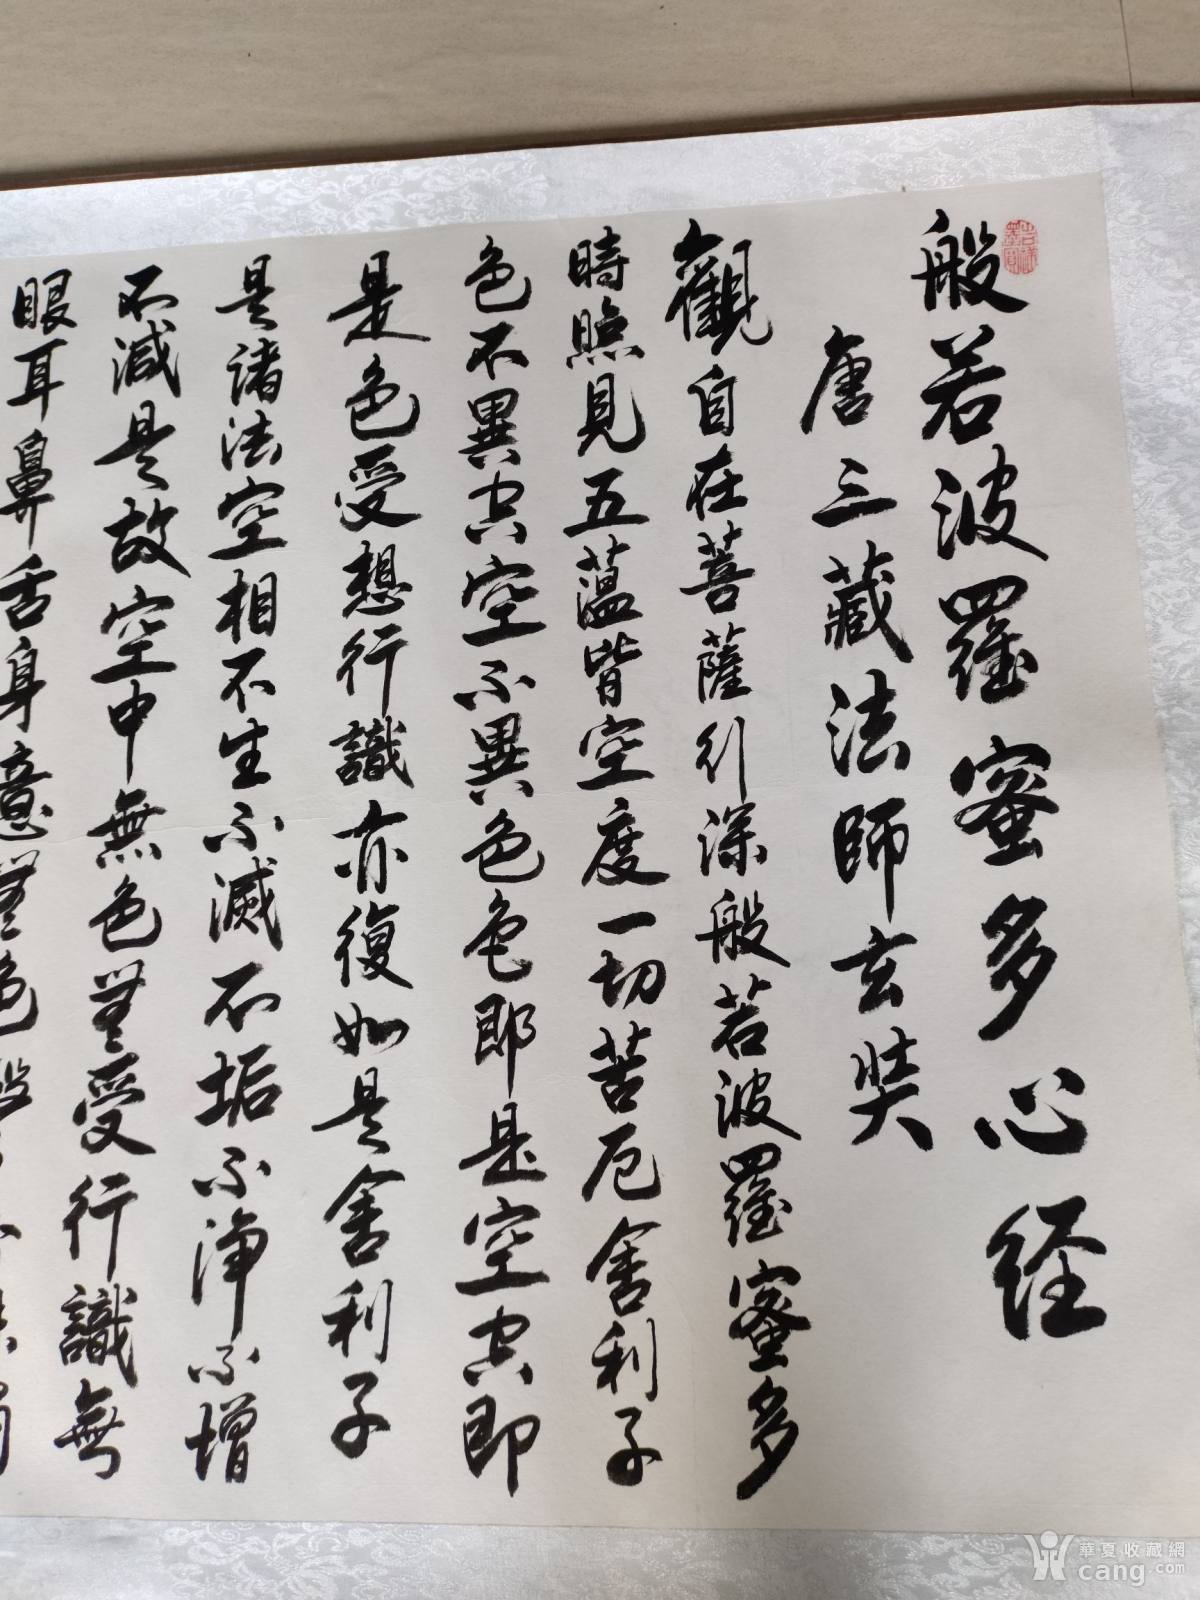 般若波羅蜜多心经
唐三藏法師玄奘
觀自在菩薩行深般若波羅蜜多
時照見五蘊皆空度一切苦厄舍利子
色不異空空不異色色即是空空即
是色受想行識亦復如是舍利子
是諸法空相不生不滅不垢不淨不增
不減是故空中無色無受行識無
眼耳鼻舌身意無色
華夏收藏網
cang.com